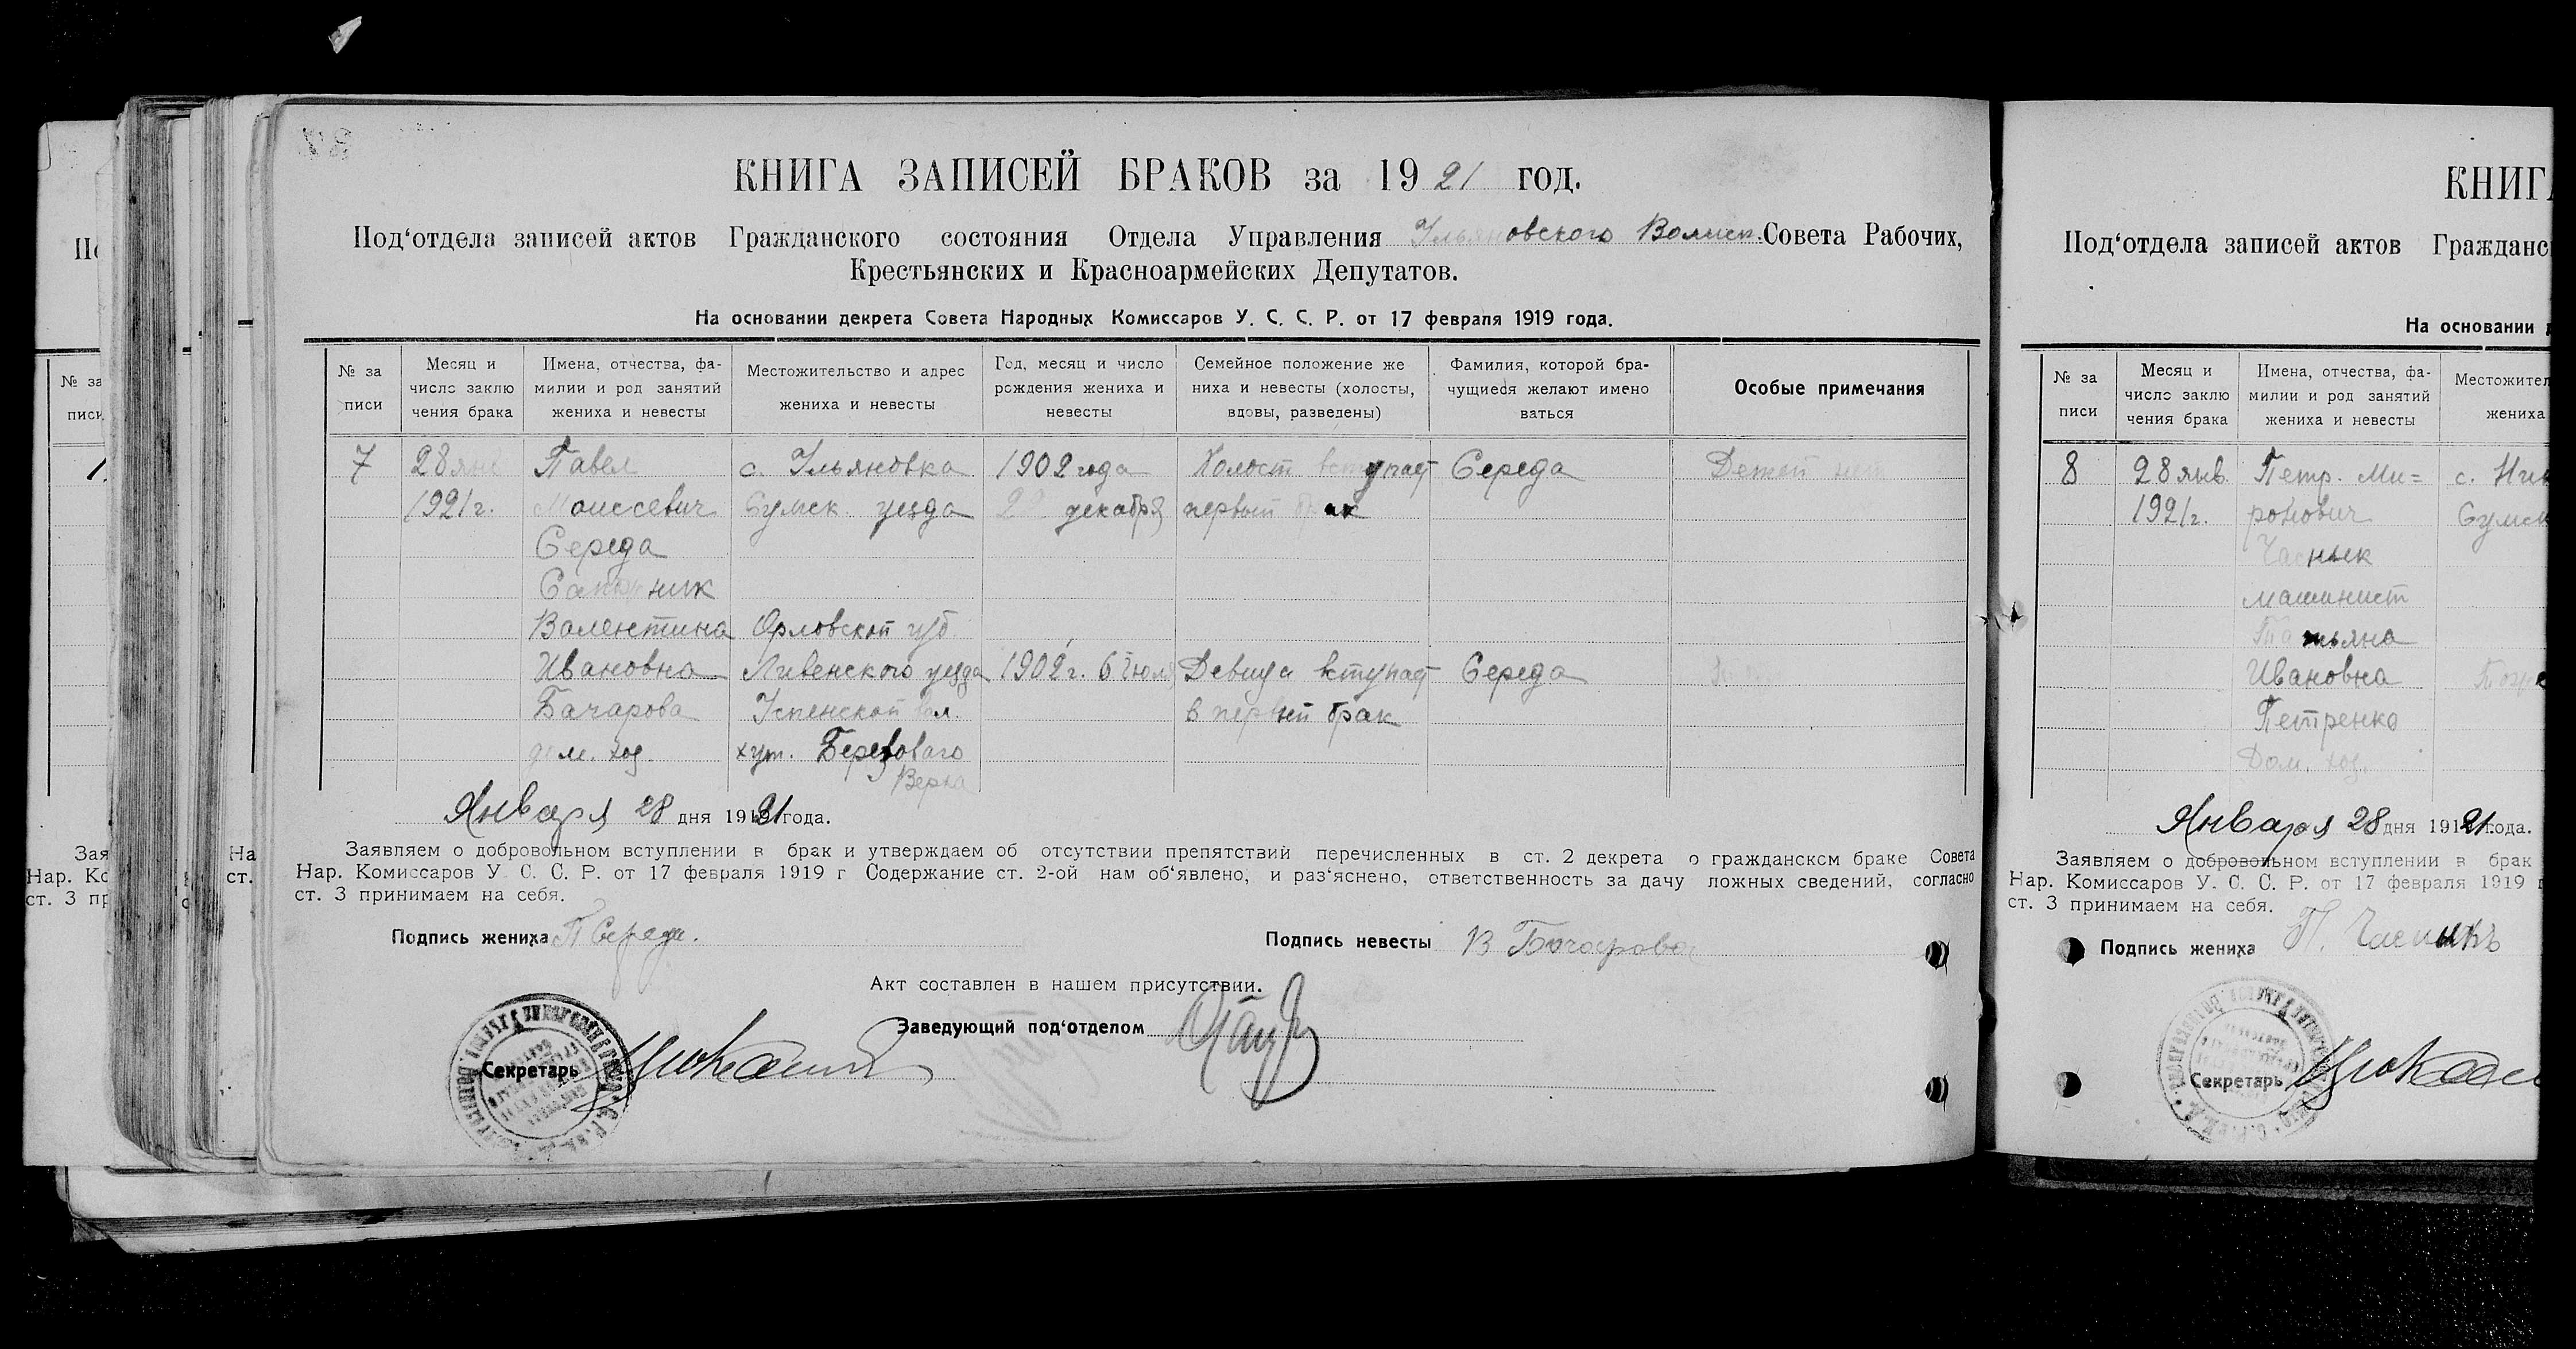 КНИГА ЗАПИСЕЙ БРАКОВ за 1921 год.
Под‘отдела записей актов Гражданского состояния Отдела Управления Ульяновского Волисп. Совета Рабочих,
Крестьянских и Красноармейских Депутатов.
На основании декрета Совета Народных Комиссаров У. С. С. Р. от 17 февраля 1919 года.
№ записи
Месяц и число заключения брака
Имена, отчества, фамилии и род занятий жениха и невесты
Местожительство и адрес жениха и невесты
Год, месяц и число рождения жениха и невесты
Семейное положение жениха и невесты (холосты, вдовы, разведены)
Фамилия, которой брачущиеся желают именоваться
Особые примечания
7 28 янв Павел с. Ульяновка 1902 года Холост вступает Середа Детей нет
1921 г. Моисеевич Сумск. уезда 22 декабря первый брак
Середа
Сапожник
Валентина Орловской губ.
Ивановна Ливенского уезда 1902 г. 6 Июля Девица вступает Середа
Бачарова Успенской вол. в первый брак
дом. хоз. хут. Березоваго
Верха
Января 28 дня 1921 года.
Заявляем о добровольном вступлении в брак и утверждаем об отсутствии препятствий перечисленных в ст. 2 декрета о гражданском браке Совета
Нар. Комиссаров У. С. С. Р. от 17 февраля 1919 г Содержание ст. 2-ой нам об‘явлено, и раз‘яснено, ответственность за дачу ложных сведений, согласно
ст. 3 принимаем на себя.
Подпись жениха П Середа. Подпись невесты В Бочарова
Акт составлен в нашем присутствии.
Заведующий под‘отделом
Секретарь
КНИГ
Под‘отдела записей актов Гражданс
На основании
№ записи
Месяц и число заключения брака
Имена, отчества, фамилии и род занятий жениха и невесты
Местожител
жениха
8 28 янв. Петр. Ми=
1921 г. ронович Сумск
Часнык
машинист
Татьяна
Ивановна
Петренко
Дом. хоз.
Января 28 дня 1921 года.
Заявляем о добровольном вступлении в брак
Нар. Комиссаров У. С. С. Р. от 17 февраля 1919
ст. 3 принимаем на себя.
Подпись жениха П. Часныкъ
Секретарь